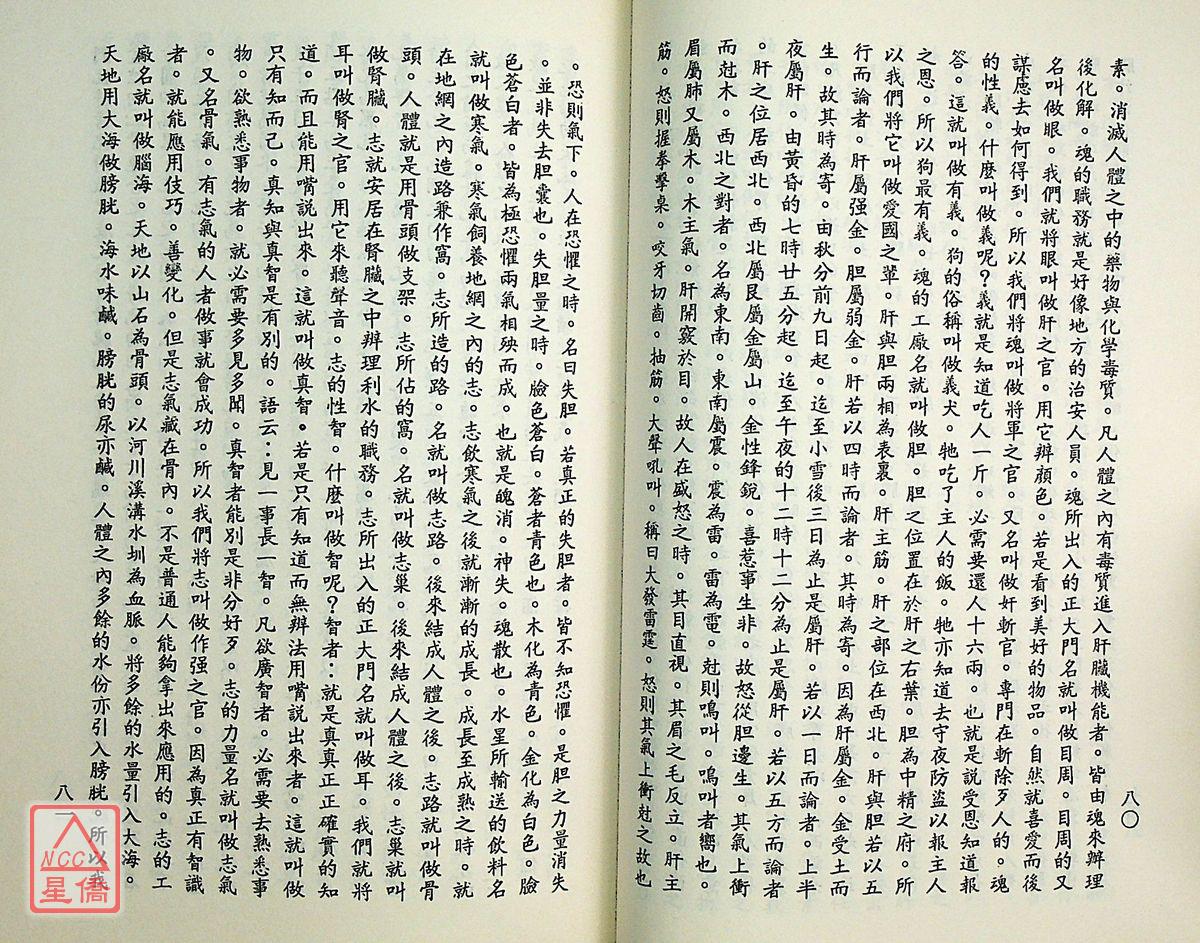 素。消滅人體之中的藥物與化學毒質。凡人體之內有毒質進入肝臟機能者。皆由魂來辦理
後化解。魂的職務就是好像地方的治安人員。魂所出入的正大門名就叫做目周。目周的又
名叫做眼。我們就將眼叫做肝之官。用它辨顏色。若是看到美好的物品。自然就喜愛而後
謀慮去如何得到。所以我們將魂叫做將軍之官。又名叫做奸斬官。專門在斬除歹人的。魂
的性義。什麼叫做義呢?義就是知道吃人一斤。必需要還人十六兩。也就是說受恩知道報
答。這就叫做有義。狗的俗稱叫做義犬。牠吃了主人的飯。牠亦知道去守夜防盜以報主人
之恩。所以狗最有義。魂的工廠名就叫做胆。胆之位置在於肝之右葉。胆為中精之府。所
以我們將它叫做愛國之輩。肝與胆兩相為表裏。肝主筋。肝之部位在西北。肝與胆若以五
行而論者。肝屬强金。胆屬弱金。肝若以四時而論者。其時為寄。因為肝屬金。金受土而
生。故其時為寄。由秋分前九日起。迄至小雪後三日為止是屬肝。若以一日而論者。上半
夜屬肝。由黃昏的七時廿五分起。迄至午夜的十二時十二分為止是屬肝。若以五方而論者
。肝之位居西北。西北屬艮屬金屬山。金性鋒銳。喜惹事生非。故怒從胆邊生。其氣上衝
而尅木。西北之對者。名為東南。東南屬震。震為雷。雷為電。尅則鳴叫。鳴叫者嚮也。
眉屬肺又屬木。木主氣。肝開竅於目。故人在盛怒之時。其目直視。其眉之毛反立。肝主
筋。怒則握拳擊桌。咬牙切齒。抽筋。大聲吼叫。稱曰大發雷霆。怒則其氣上衝尅之故也
八〇
。恐則氣下。人在恐懼之時。名曰失胆。若真正的失胆者。皆不知恐懼。是胆之力量消失
。並非失去胆囊也。失胆量之時。臉色蒼白。蒼者青色也。木化為青色。金化為白色。臉
色蒼白者。皆為極恐懼兩氣相殃而成。也就是魄消。神失。魂散也。水星所輸送的飲料名
就叫做寒氣。寒氣飼養地網之內的志。志飲寒氣之後就漸漸的成長。成長至成熟之時。就
在地網之內造路兼作窩。志所造的路。名就叫做志路。後來結成人體之後。志路就叫做骨
頭。人體就是用骨頭做支架。志所佔的窩。名就叫做志巢。後來結成人體之後。志巢就叫
做腎臟。志就安居在腎臟之中辦理利水的職務。志所出入的正大門名就叫做耳。我們就將
耳叫做腎之官。用它來聽聲音。志的性智。什麼叫做智呢?智者:就是真真正正確實的知
道。而且能用嘴說出來。這就叫做真智。若是只有知道而無辦法用嘴說出來者。這就叫做
只有知而已。真知與真智是有別的。語云:見一事長一智。凡欲廣智者。必需要去熟悉事
物。欲熟悉事物者。就必需要多見多聞。真智者能別是非分好歹。志的力量名就叫做志氣
。又名骨氣。有志氣的人者做事就會成功。所以我們將志叫做作强之官。因為真正有智識
者。就能應用伎巧。善變化。但是志氣藏在骨內。不是普通人能夠拿出來應用的。志的工
廠名就叫做腦海。天地以山石為骨頭。以河川溪溝水圳為血脈。將多餘的水量引入大海。
天地用大海做膀胱。海水味鹹。膀胱的尿亦鹹。人體之內多餘的水份亦引入膀胱。所以我
八一
NCC
星僑